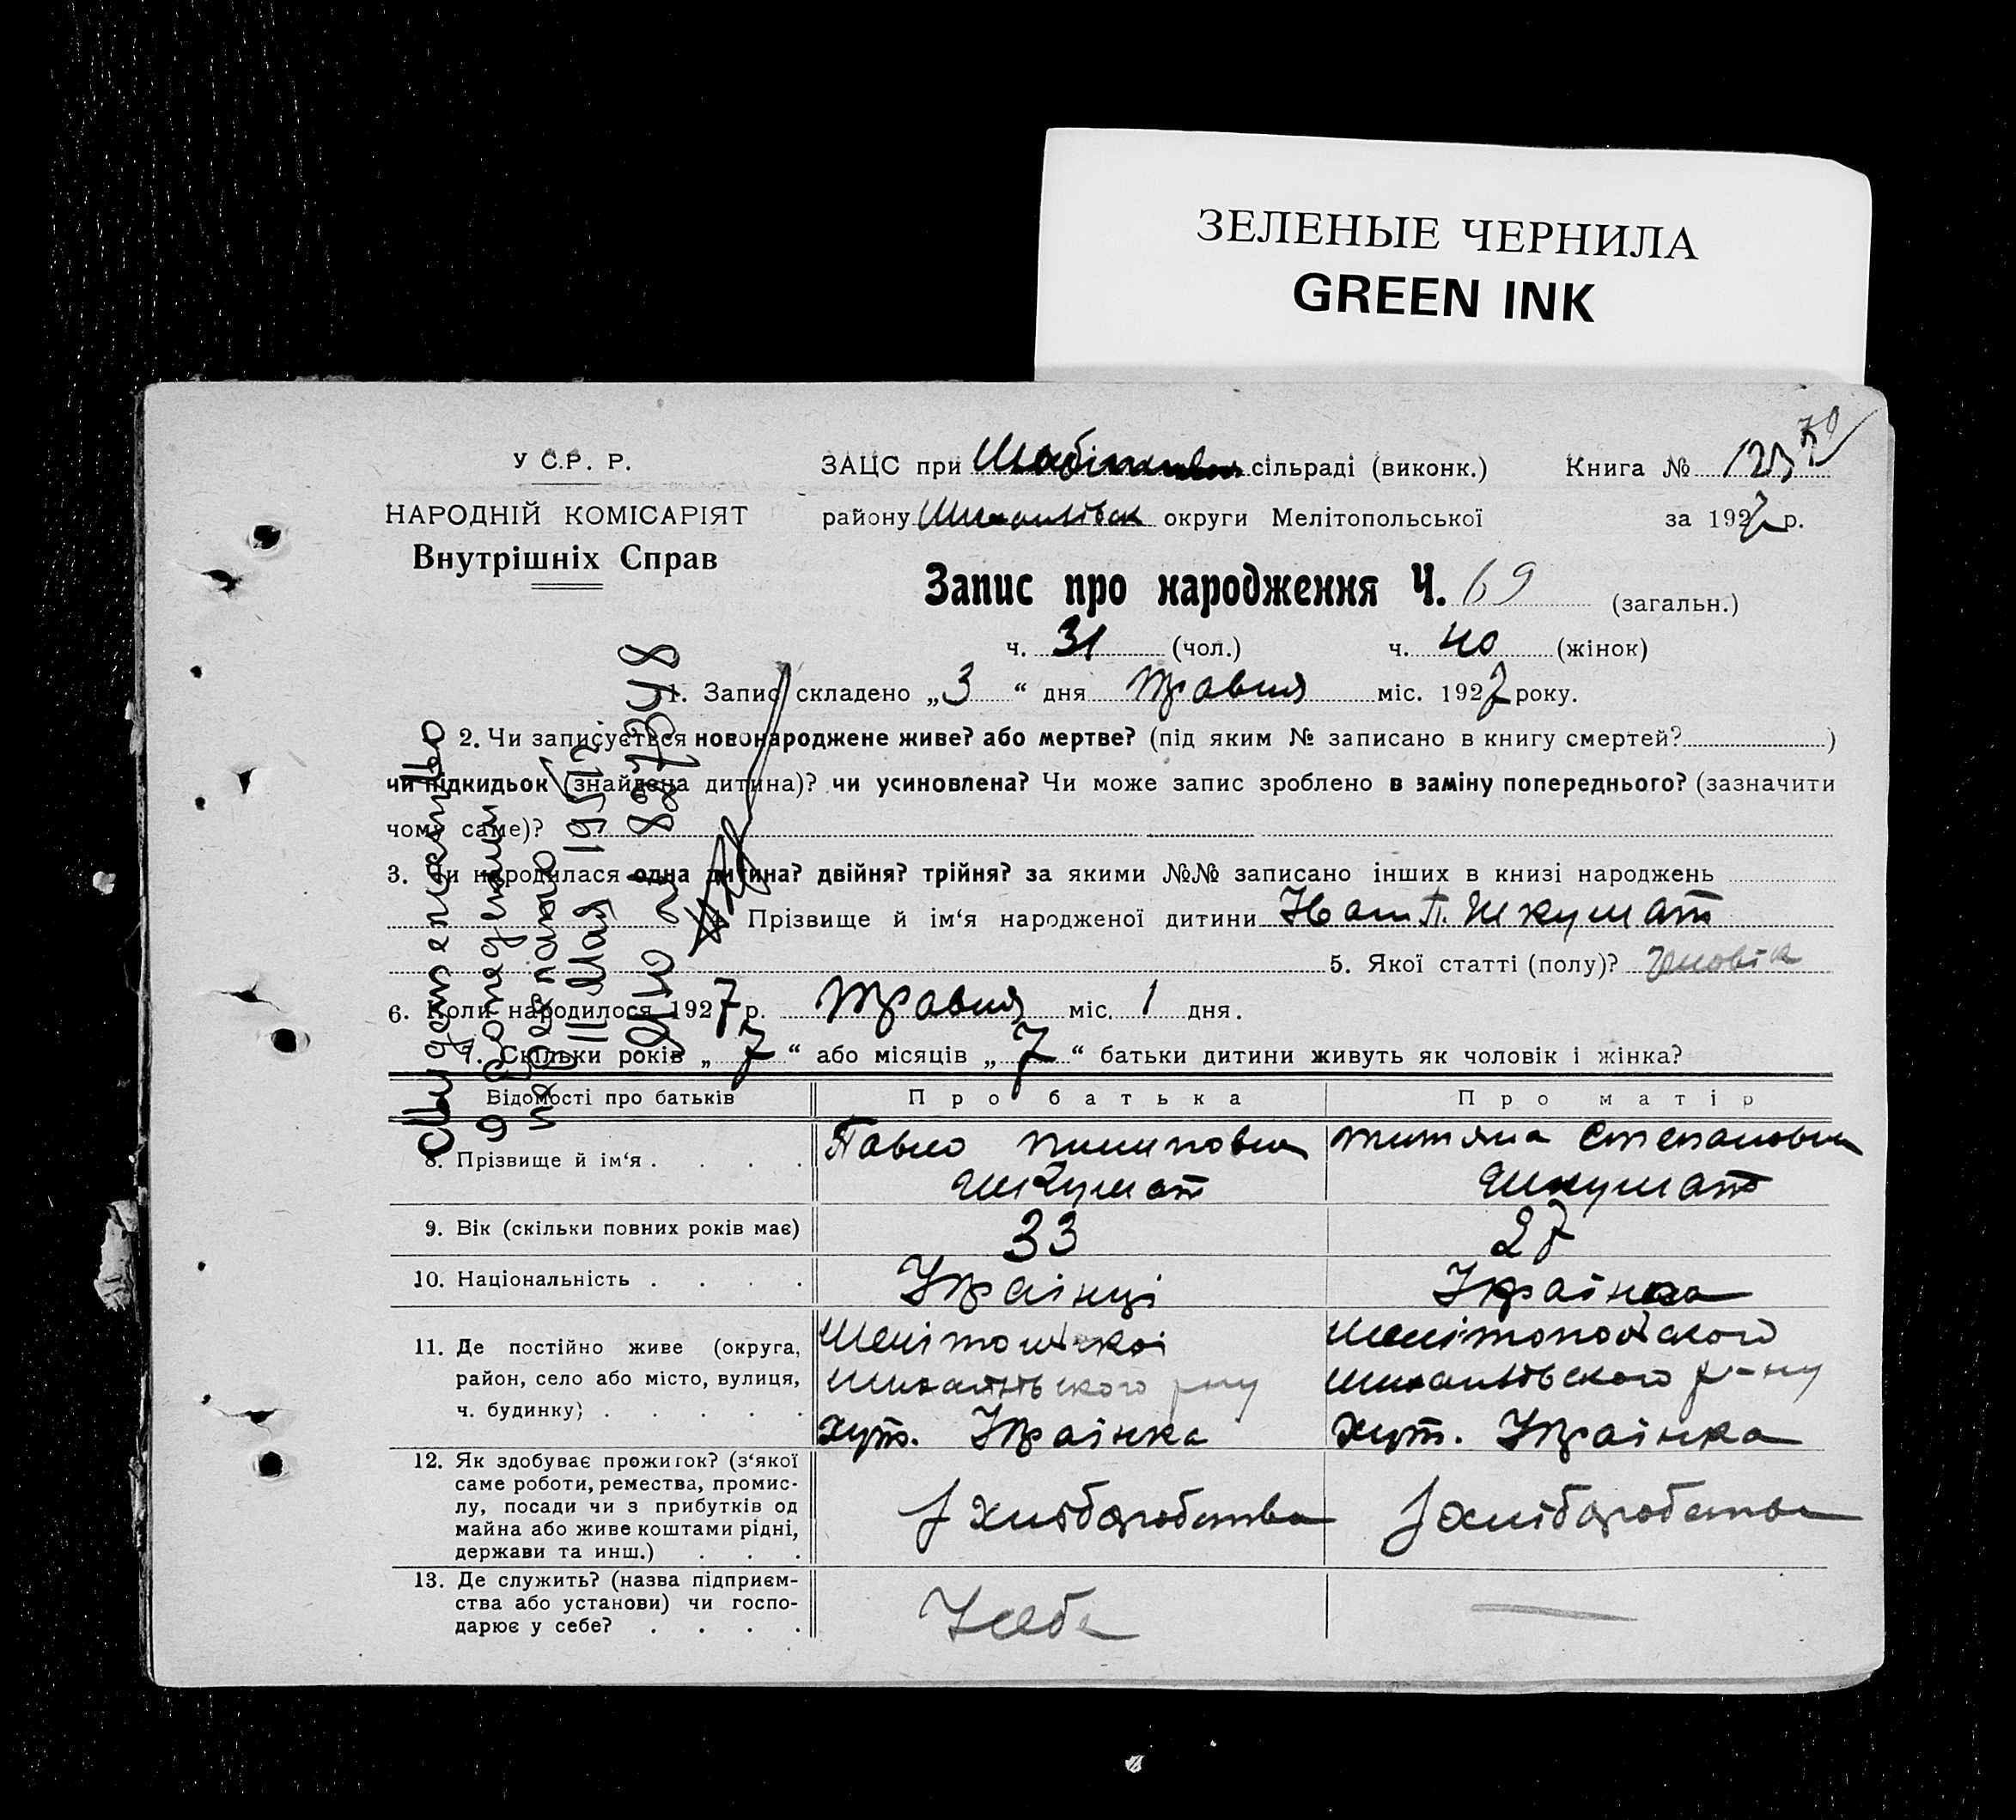 ЗЕЛЕНЫЕ ЧЕРНИЛА
GREEN INK
У С.Р. Р.
НАРОДНІЙ КОМІСАРІЯТ
Внутрішніх Справ
ЗАЦС при сільраді (виконк.) Книга №
району округи Мелітопольської за 1927 р.
Запис про народження Ч. 69 (загальн.)
ч. 31 (чол.) ч. 40 (жінок)
1. Запис складено „3“ дня травня міс. 1927 року.
2. Чи записується новонароджене живе? або мертве? (під яким № записано в книгу смертей? )
чи підкидьок (знайдена дитина)? чи усиновлена? Чи може запис зроблено в заміну попереднього? (зазначити
чому саме)?
3. Чи народилася одна дитина? двійня? трійня? за якими №№ записано інших в книзі народжень
4. Прізвище й ім‘я народженої дитини П. Шкумат
5. Якої статті (полу)? Чоловік
6. Коли народилося 1927 р. травня міс. 1 дня.
7. Скільки років „7“ або місяців „7“ батьки дитини живуть як чоловік і жінка?
Відомості про батьків Про батька Про матір
8. Прізвище й ім‘я . . . . Павло Шкумат Степановна Шкумат
9. Вік (скільки повних років має) 33 27
10. Національність . . . . Українці Українка
11. Де постійно живе (округа, район, село або місто, вулиця, ч. будинку) . . . . . хут. Українка хут. Українка
12. Як здобуває прожиток? (з‘якої саме роботи, ремества, промислу, посади чи з прибутків од майна або живе коштами рідні, держави та инш.) . . . З хліборобства З хліборобства
13. Де служить? (назва підприємства або установи) чи господарює у себе? . . . . У себе —
Свидетельство
о рождении
11 Мая 1957